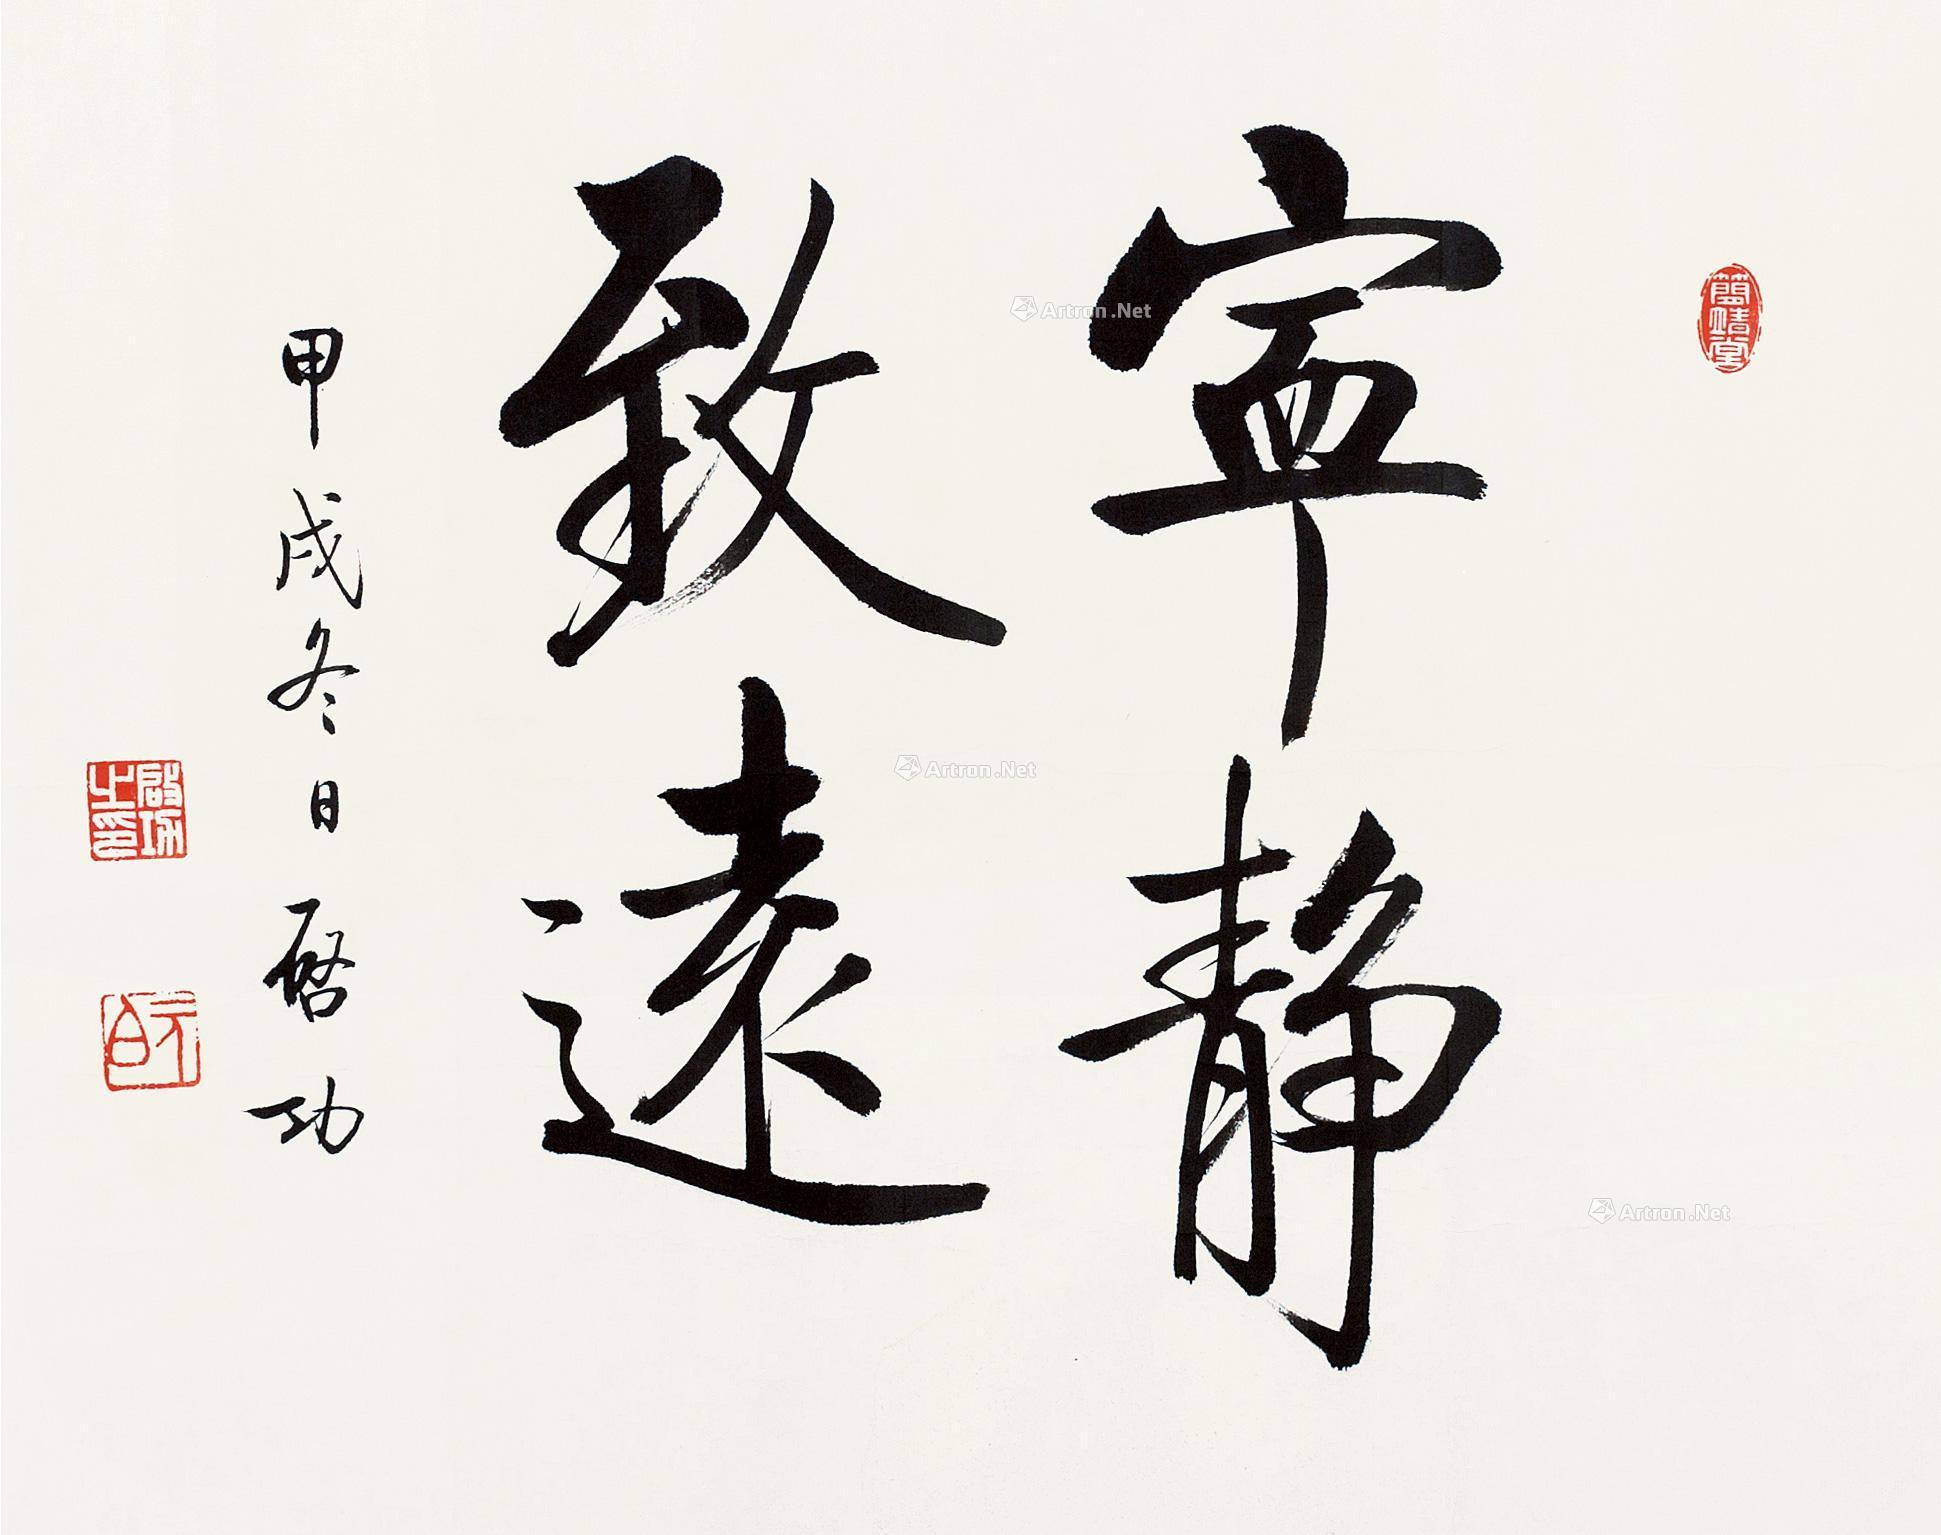 寧静
致遠
甲戌冬日 啓功
簡靖堂
啟功之印
元白
Artron.Net
Artron.Net
Artron.Net